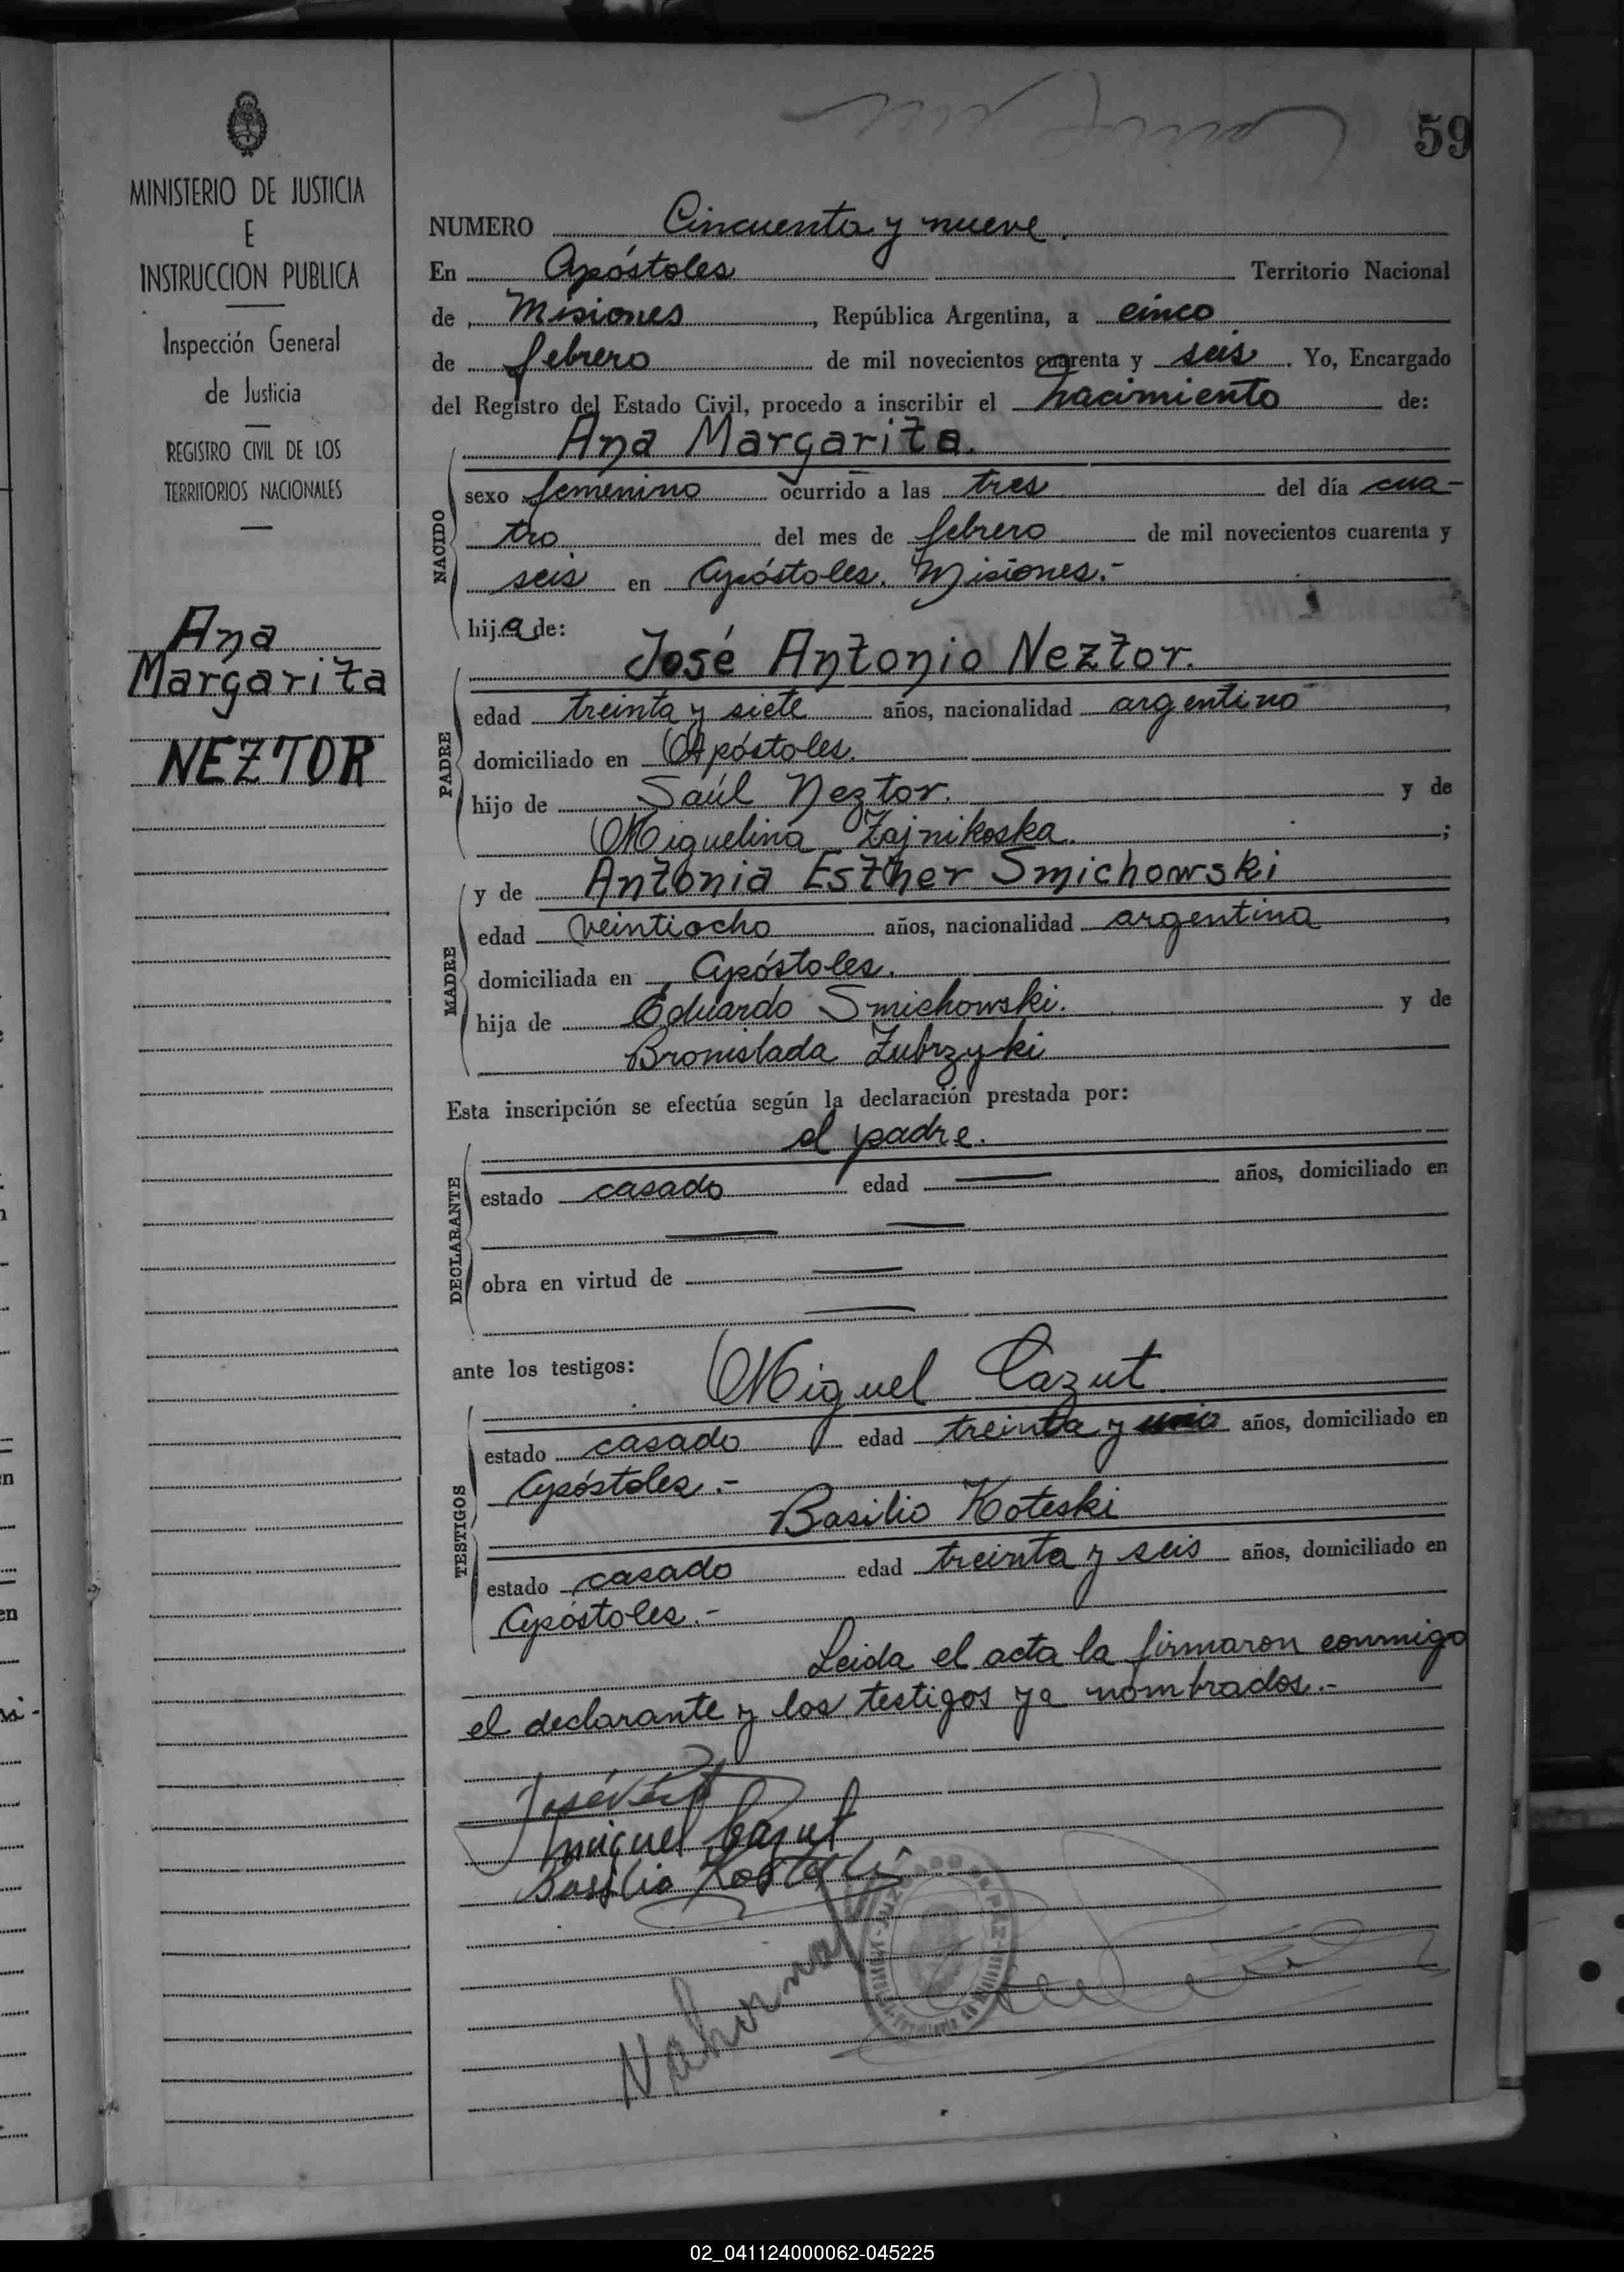 59
MINISTERIO DE JUSTICIA
E
INSTRUCCION PUBLICA
Inspección General
de Justicia
REGISTRO CIVIL DE LOS
TERRITORIOS NACIONALES
Ana
Margarita
NEZTOR
NUMERO Cincuenta y nueve.
En Apóstoles Territorio Nacional
de Misiones, República Argentina, a cinco
de febrero de mil novecientos cuarenta y seis. Yo, Encargado
del Registro del Estado Civil, procedo a inscribir el nacimiento de:
Ana Margarita.
NACIDO
sexo femenino ocurrido a las tres del día cua-
tro del mes de febrero de mil novecientos cuarenta y
seis en Apóstoles. Misiones.-
hija de:
José Antonio Neztor.
PADRE
edad treinta y siete años, nacionalidad argentino,
domiciliado en Apóstoles.
hijo de Saúl Neztor. y de
Miguelina Zajnikoska.;
y de Antonia Esther Smichowski
MADRE
edad veintiocho años, nacionalidad argentina,
domiciliada en Apóstoles.
hija de Eduardo Smichowski. y de
Bronislada Zubrzyki
Esta inscripción se efectúa según la declaración prestada por:
el padre.
DECLARANTE
estado casado edad — años, domiciliado en
— —
obra en virtud de —
—
ante los testigos: Miguel Cazut.
TESTIGOS
estado casado edad treinta y uno años, domiciliado en
Apóstoles.-
Basilio Koteski
estado casado edad treinta y seis años, domiciliado en
Apóstoles.-
Leida el acta la firmaron conmigo
el declarante y los testigos ya nombrados.-
José
Miguel Cazut
Basilio
02_041124000062-045225